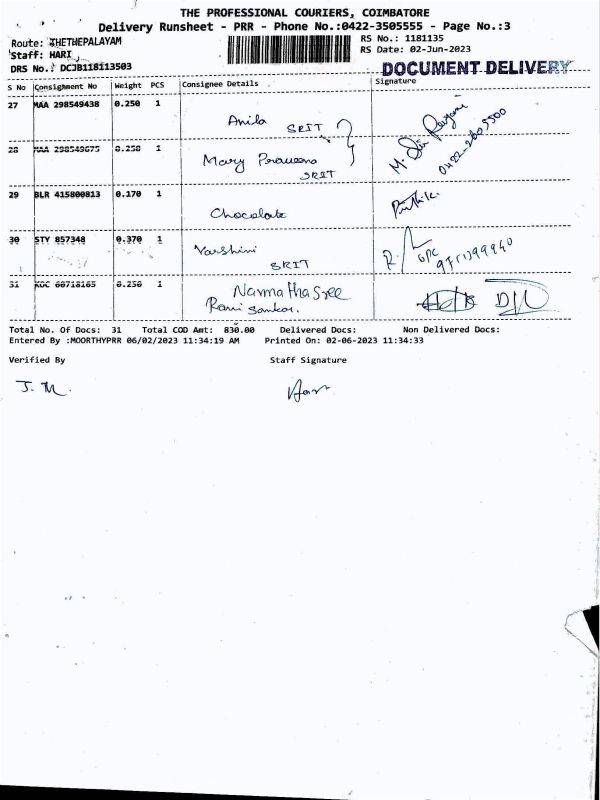 THE PROFESSIONAL COURIERS, COIMBATORE
Delivery Runsheet - PRR - Phone No.:0422-3505555 - Page No.:3
Route: THETHEPALAYAM
RS No.: 1181135
Staff: HARI
RS Date: 02-Jun-2023
DRS No.: DCJB118113503
DOCUMENT DELIVERY
S No Consignment No Weight PCS Consignee Details Signature
27 MAA 298549438 0.250 1
Anila
SRIT
28 MAA 298549675 0.250 1
Mary
SRIT
0422-2605500
29 BLR 415800813 0.170 1
Chocolate
30 STY 857348 0.370 1
Varshini
SRIT
31 KOC 68718165 0.250 1
Narmathasree
Total No. Of Docs: 31 Total COD Amt: 830.00 Delivered Docs: Non Delivered Docs:
Entered By :MOORTHYPRR 06/02/2023 11:34:19 AM Printed On: 02-06-2023 11:34:33
Verified By Staff Signature
J. M.